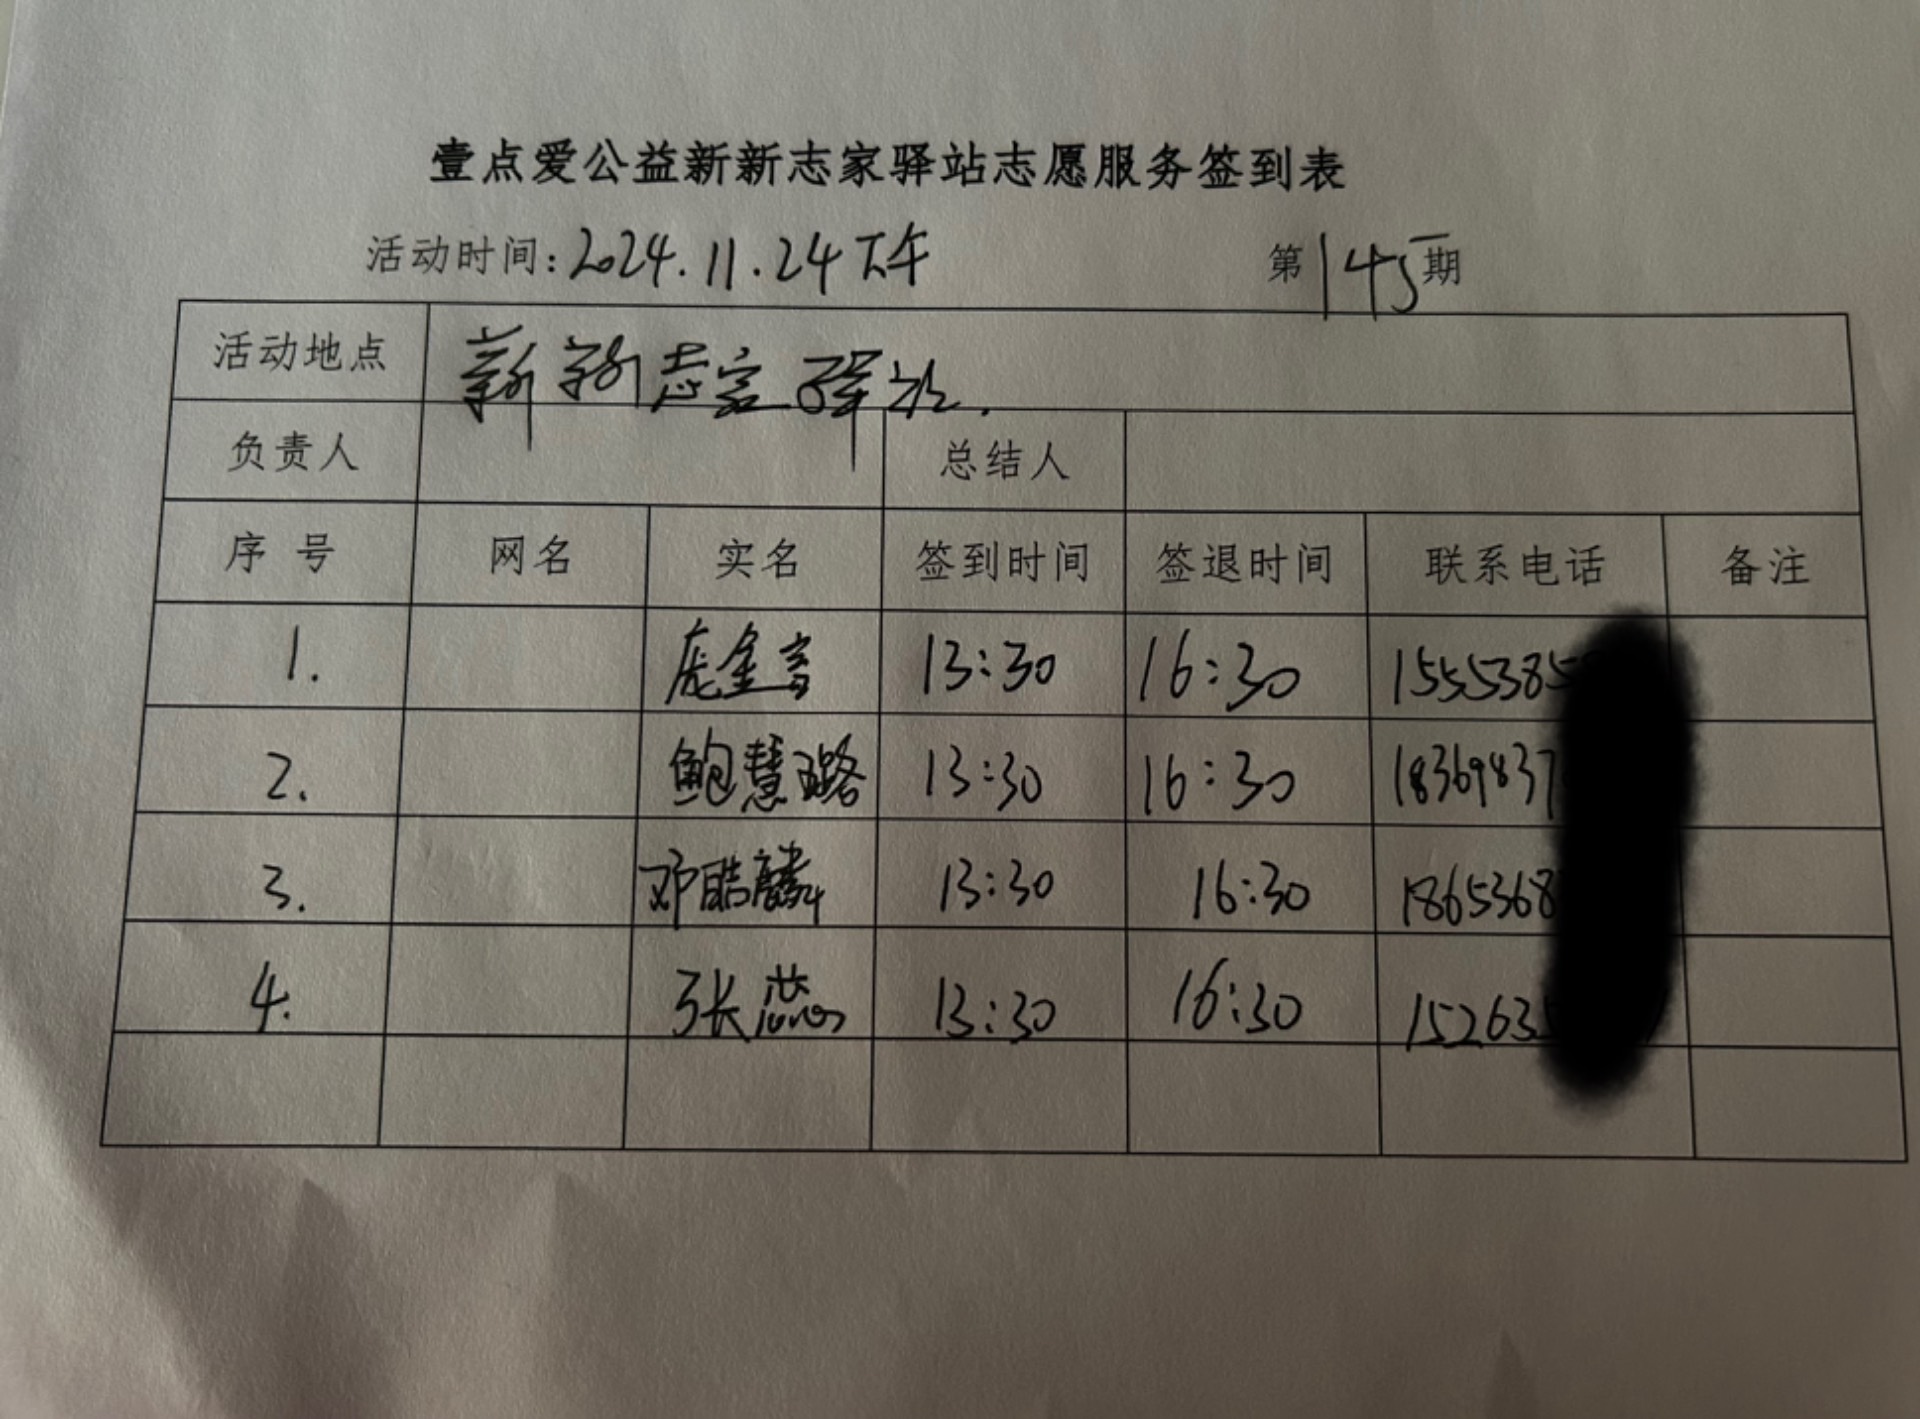 壹点爱公益新新志家驿站志愿服务签到表
活动时间:2024.11.24下午 第145期
活动地点 新新志家驿站.
负责人 总结人
序号 网名 实名 签到时间 签退时间 联系电话 备注
1. 庞金言 13:30 16:30 1555385
2. 鲍慧璐 13:30 16:30 18369837
3. 邓皓麟 13:30 16:30 1865368
4. 张蕊 13:30 16:30 152635